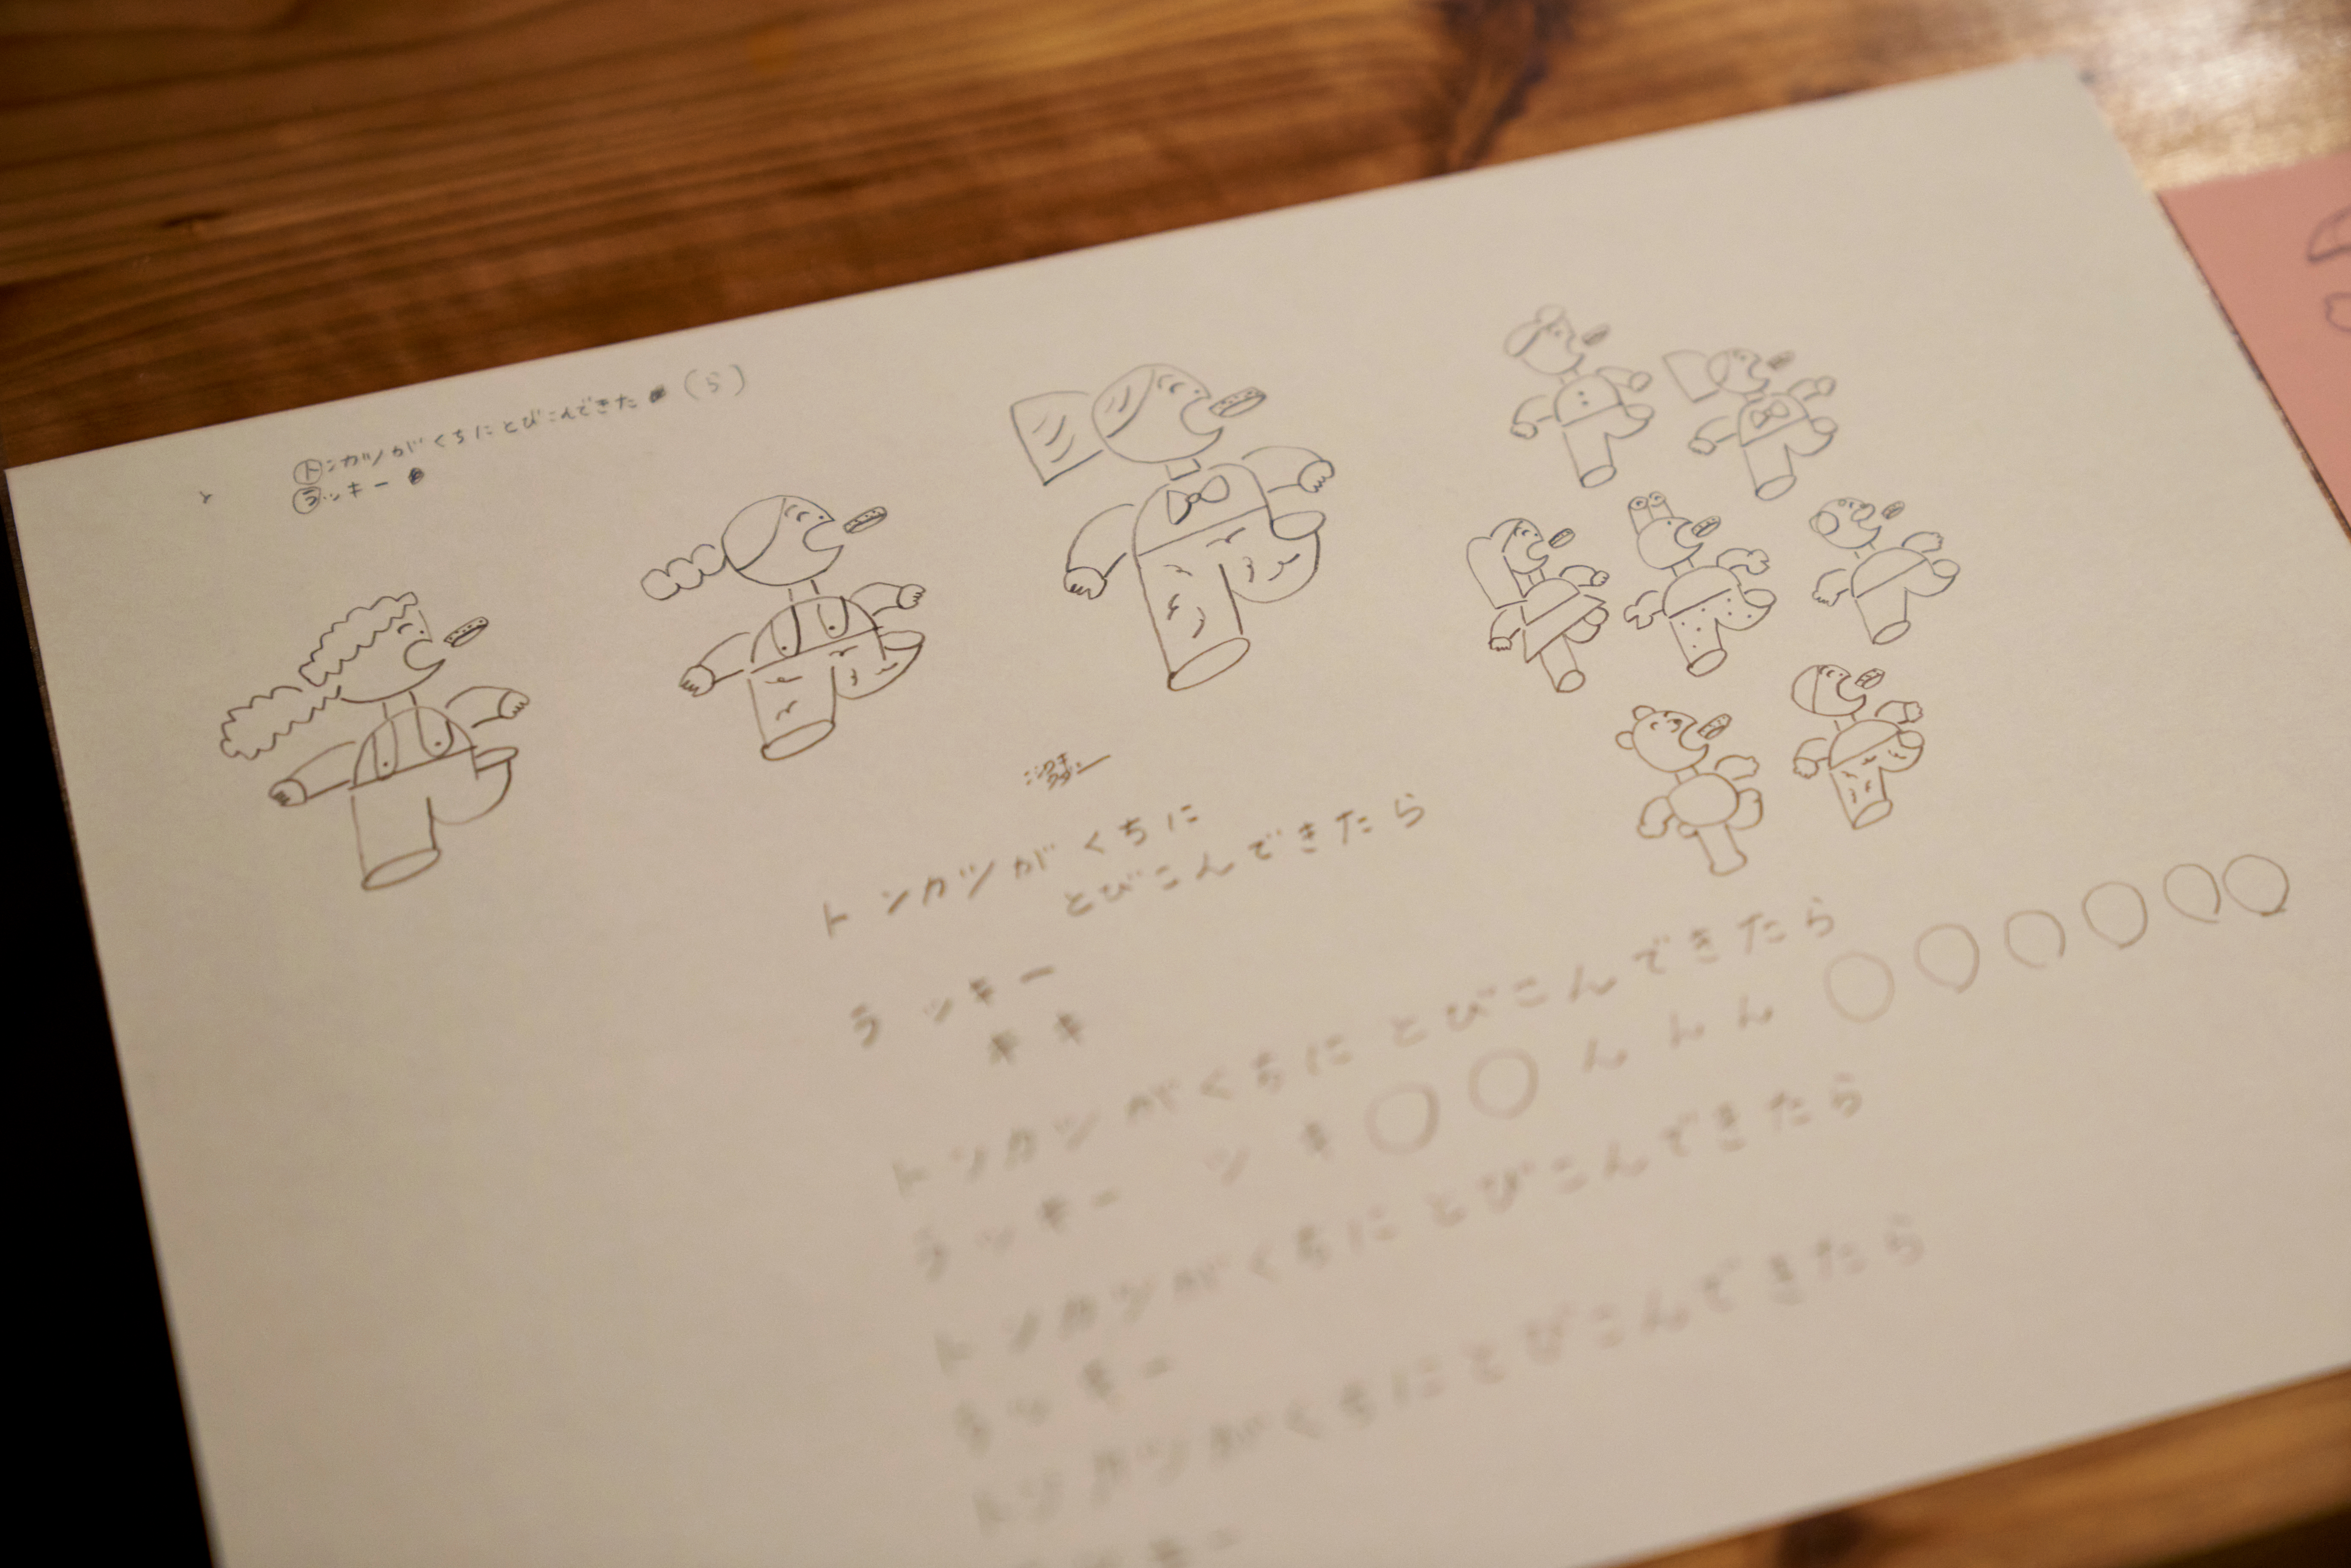 トンカツがくちにとびこんできた (ら)
ラッキー
トンカツがくちに
とびこんできたら
ラッキー
キキ
トンカツがくちにとびこんできたら
ラッキー ツキ○○んんん○○○○○○
トンカツがくちにとびこんできたら
ラッキー
トンカツがくちにとびこんできたら
ラッキー